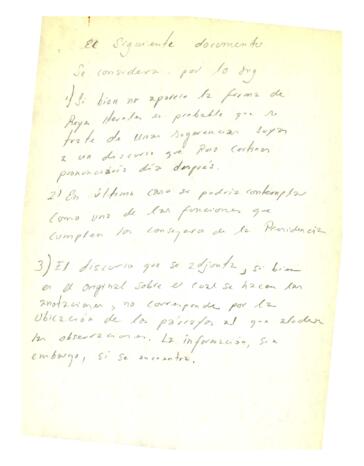 El siguiente documento
Se considera por lo
1) Si bien no aparece la forma de
Reyes Heroles es probable que se
trate de unas sugerencias suyas
a un discurso que Ruiz Cortines
pronunciaría día después.
2) En último caso se podría contemplar
como una de las funciones que
cumplen los consejeros de la Presidencia
3) El discurso que se adjunta, si bien
es el original sobre el cual se hacen las
anotaciones, no corresponde por la
Ubicación de los párrafos al que aluden
las observaciones. La información, sin
embargo, si se encuentra.